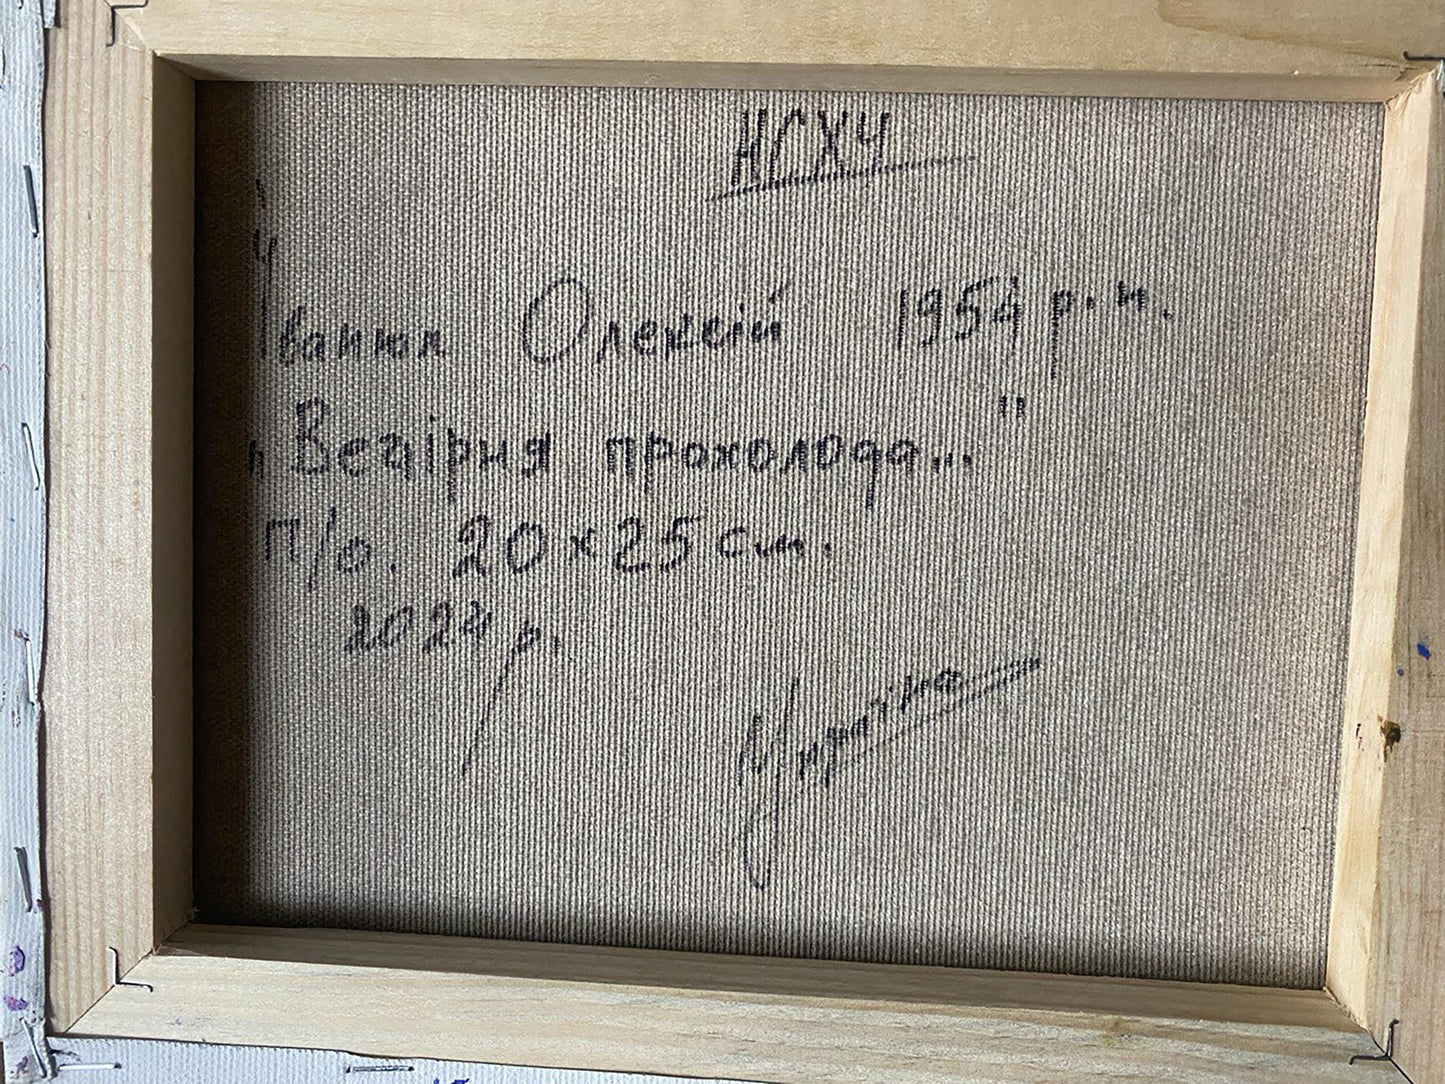 НСХУ
Іванюк Олексій 1954 р.н.
„Вечірня прохолода..."
П/о. 20х25 см.
2024 р.
Україна